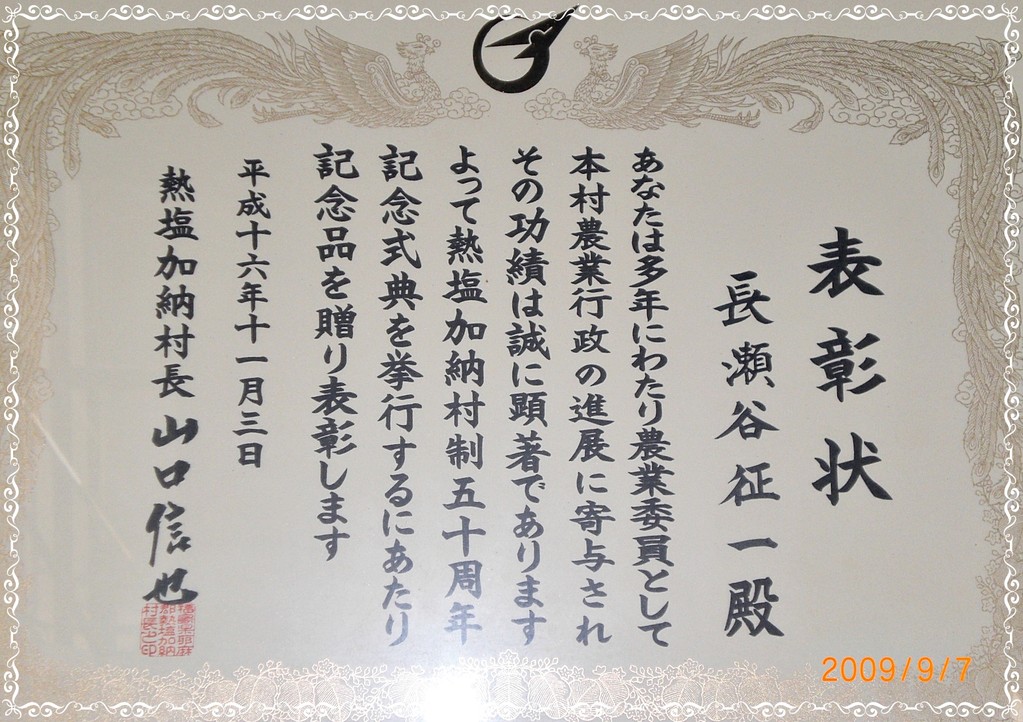 表彰状
長瀬谷征一殿
あなたは多年にわたり農業委員として
本村農業行政の進展に寄与され
その功績は誠に顕著であります
よって熱塩加納村制五十周年
記念式典を挙行するにあたり
記念品を贈り表彰します
平成十六年十一月三日
熱塩加納村長 山口信也
福島県耶麻
郡熱塩加納
村長之印
2009/9/7